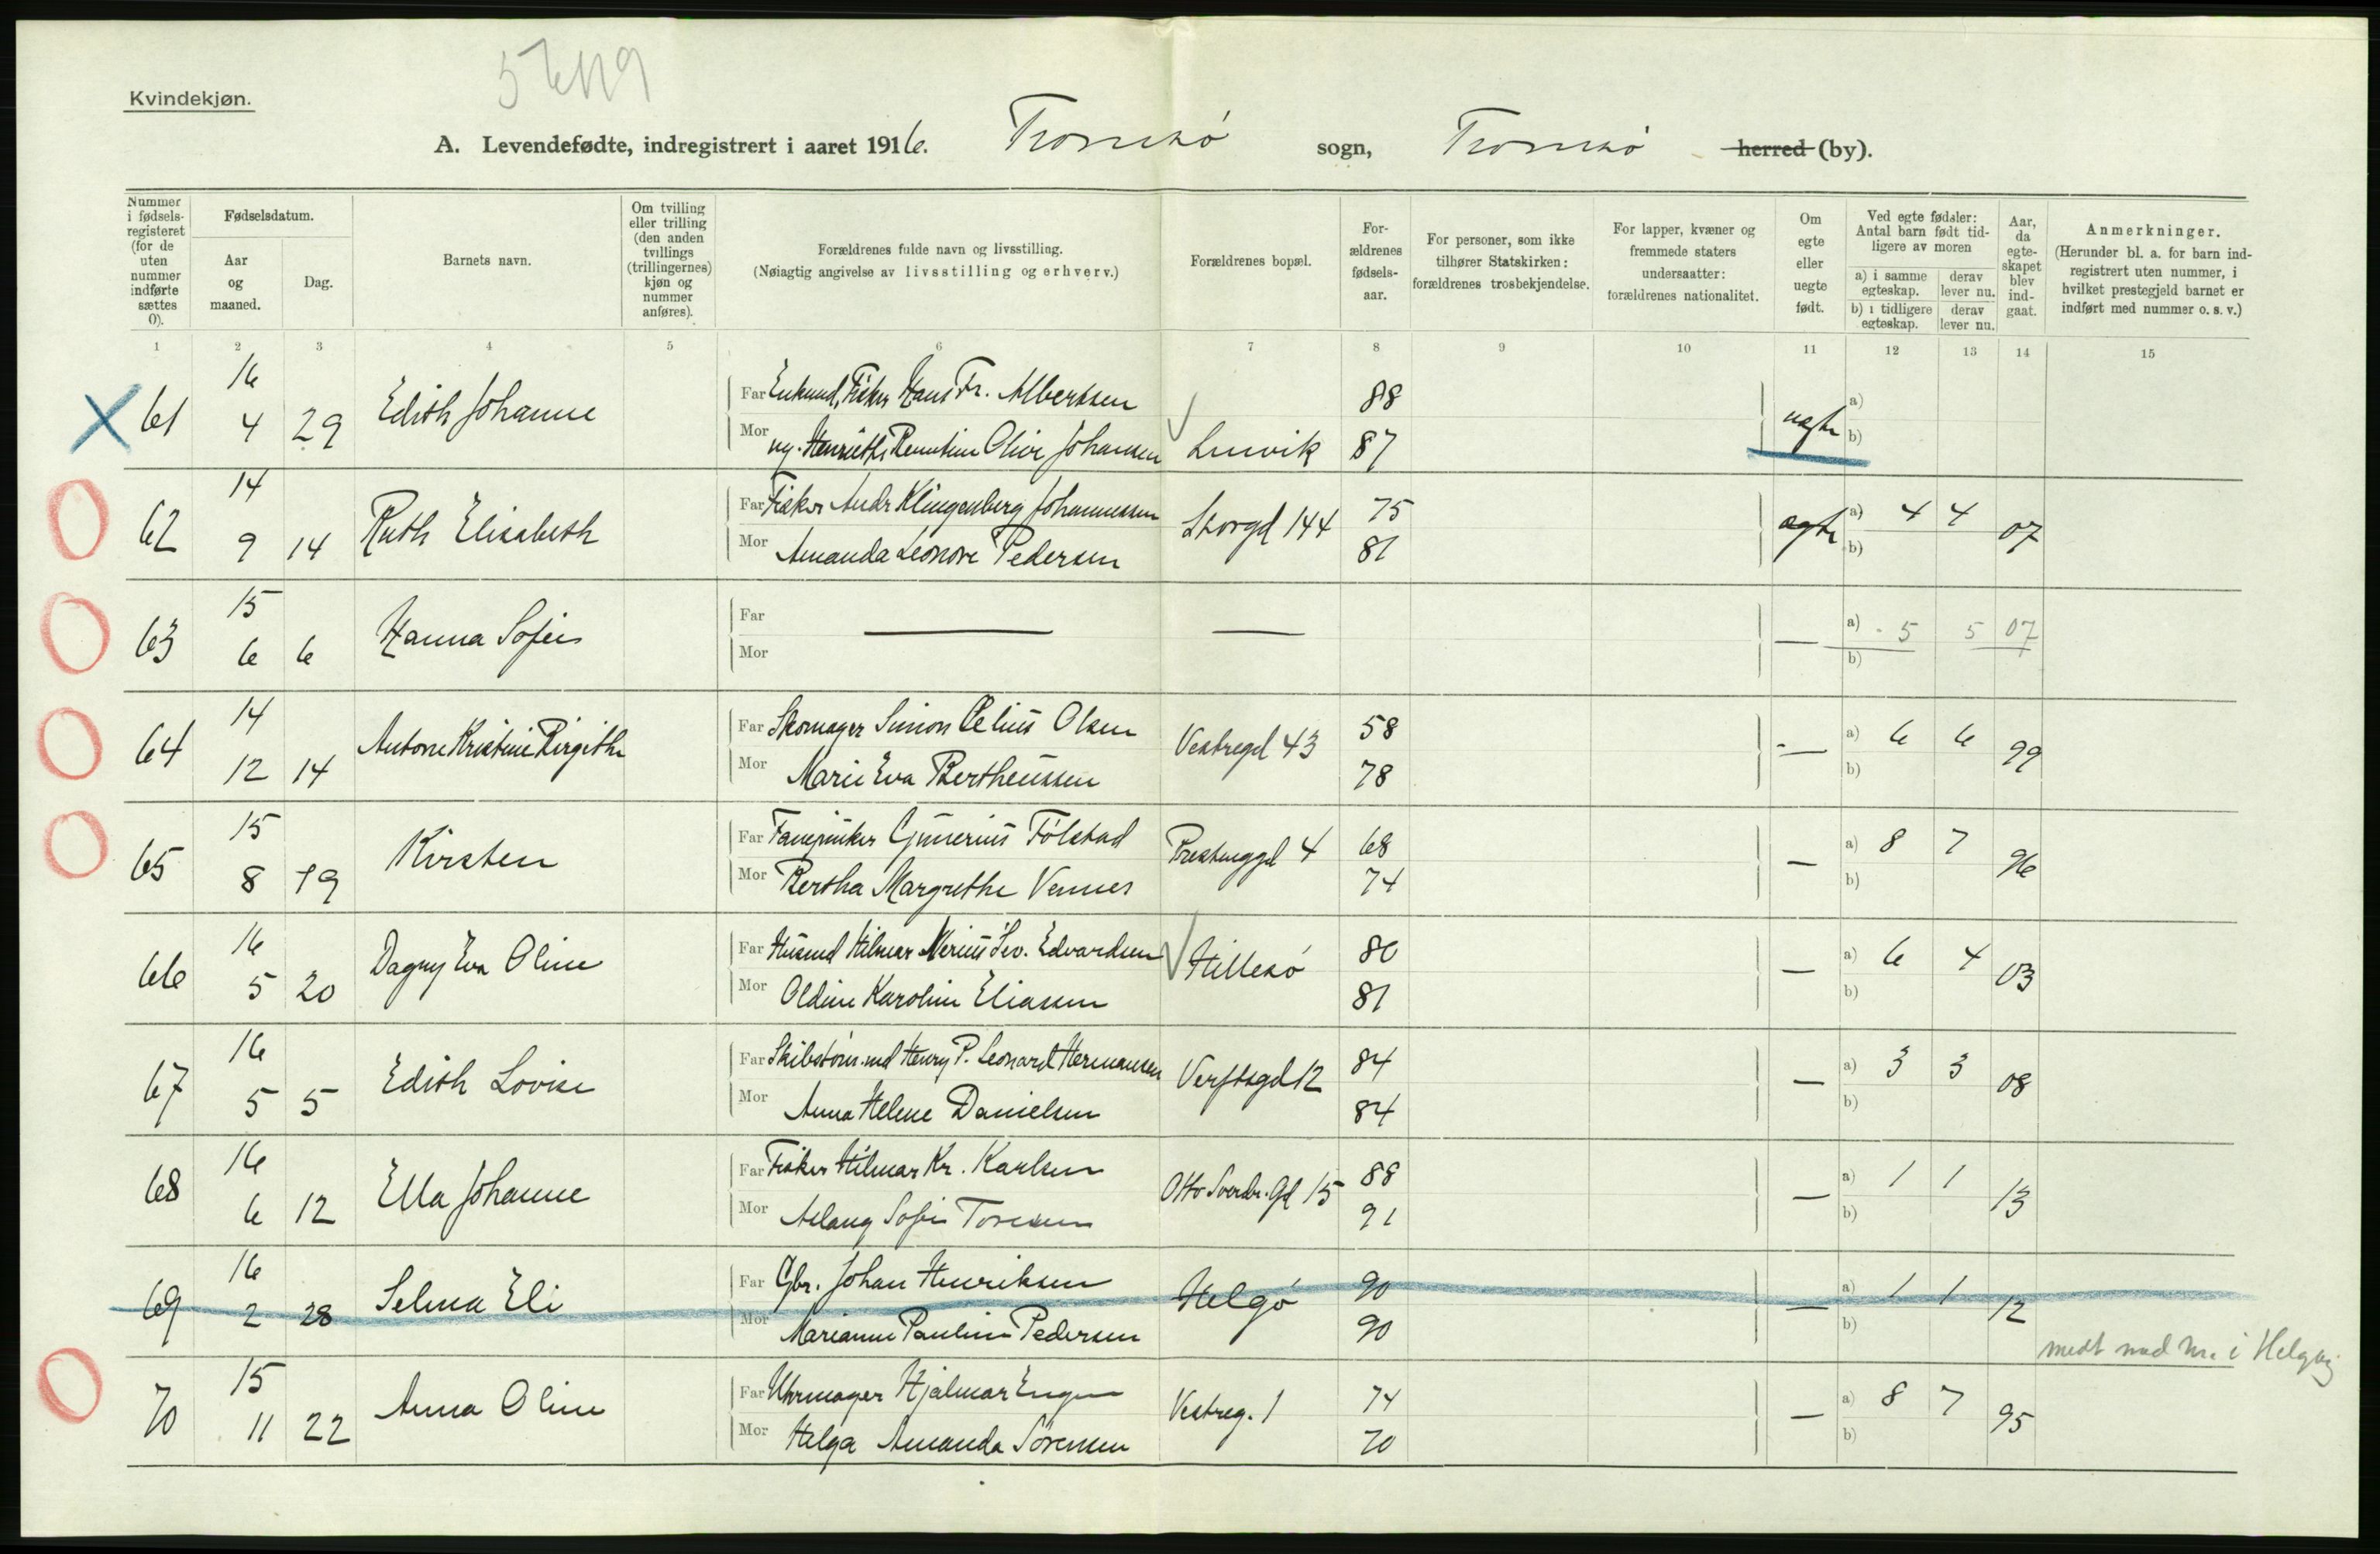 Kvindekjøn.
A. Levendefødte, indregistrert i aaret 1916. Tromsø sogn, Tromsø herred (by).
Nummer i fødselsregisteret (for de uten nummer indførte sættes 0).
Fødselsdatum.
Aar og maaned.
Dag.
Barnets navn.
Om tvilling eller trilling (den anden tvillings (trillingernes) kjøn og nummer anføres).
Forældrenes fulde navn og livsstilling.
(Nøiagtig angivelse av livsstilling og erhverv.)
Forældrenes bopæl.
Forældrenes fødselsaar.
For personer, som ikke tilhører Statskirken: forældrenes trosbekjendelse.
For lapper, kvæner og fremmede staters undersaatter: forældrenes nationalitet.
Om egte eller uegte født.
Ved egte fødsler: Antal barn født tidligere av moren
a) i samme egteskap. derav lever nu.
b) i tidligere egteskap. derav lever nu.
Aar, da egteskapet blev indgaat.
Anmerkninger.
(Herunder bl. a. for barn indregistrert uten nummer, i hvilket prestegjeld barnet er indført med nummer o. s. v.)
1 2 3 4 5 6 7 8 9 10 11 12 13 14 15
61 16 4 29 Edith Johanne
Far Enkemd, Fisker Hans Fr. Albertsen 88
Mor Henriette Olive Johansen Lenvik 87 uegte a) b)
62 14 9 14 Ruth Elisabeth
Far Fisker Andr Klingenberg Johannessen Storgd 144 75
Mor Amanda Leonore Pedersen 81 egte a) 4 4 b) 07
63 15 6 6 Hanna Sofie
Far —
Mor — a) 5 5 07 b)
64 14 12 14 Antone Kristine Birgithe
Far Skomager Simon Olsen Vestregd 43 58
Mor Marie Eva Bertheussen 78 — a) 6 6 b) 99
65 15 8 19 Kirsten
Far Fanejunker Gunerius Følstad 4 68
Mor Bertha Margrethe Vennes 74 — a) 8 7 b) 96
66 16 5 20 Dagny Eva Oline
Far Husmd Hilmar Edvardsen Hillesø 80
Mor Oldine Karoline Eliassen 81 — a) 6 4 b) 03
67 16 5 5 Edith Lovise
Far Skibstøm.md Henry P. Leonard Hermansen Verftsgd 12 84
Mor Anna Helene Danielsen 84 — a) 3 3 b) 08
68 16 6 12 Ella Johanne
Far Fisker Hilmar Kr. Karlsen Otto Sverdr. Gd 15 88
Mor Aslaug Sofie Toresen 91 — a) 1 1 b) 13
69 16 2 28 Selma Eli
Far Gbr. Johan Henriksen Helgø 90
Mor Marianne Pauline Pedersen 90 — a) 1 1 b) 12
medt med nr. i Helgøy
70 15 11 22 Anna Oline
Far Uhrmager Hjalmar Engen Vestreg. 1 74
Mor Helga Amanda Sørensen 70 — a) 8 7 b) 95